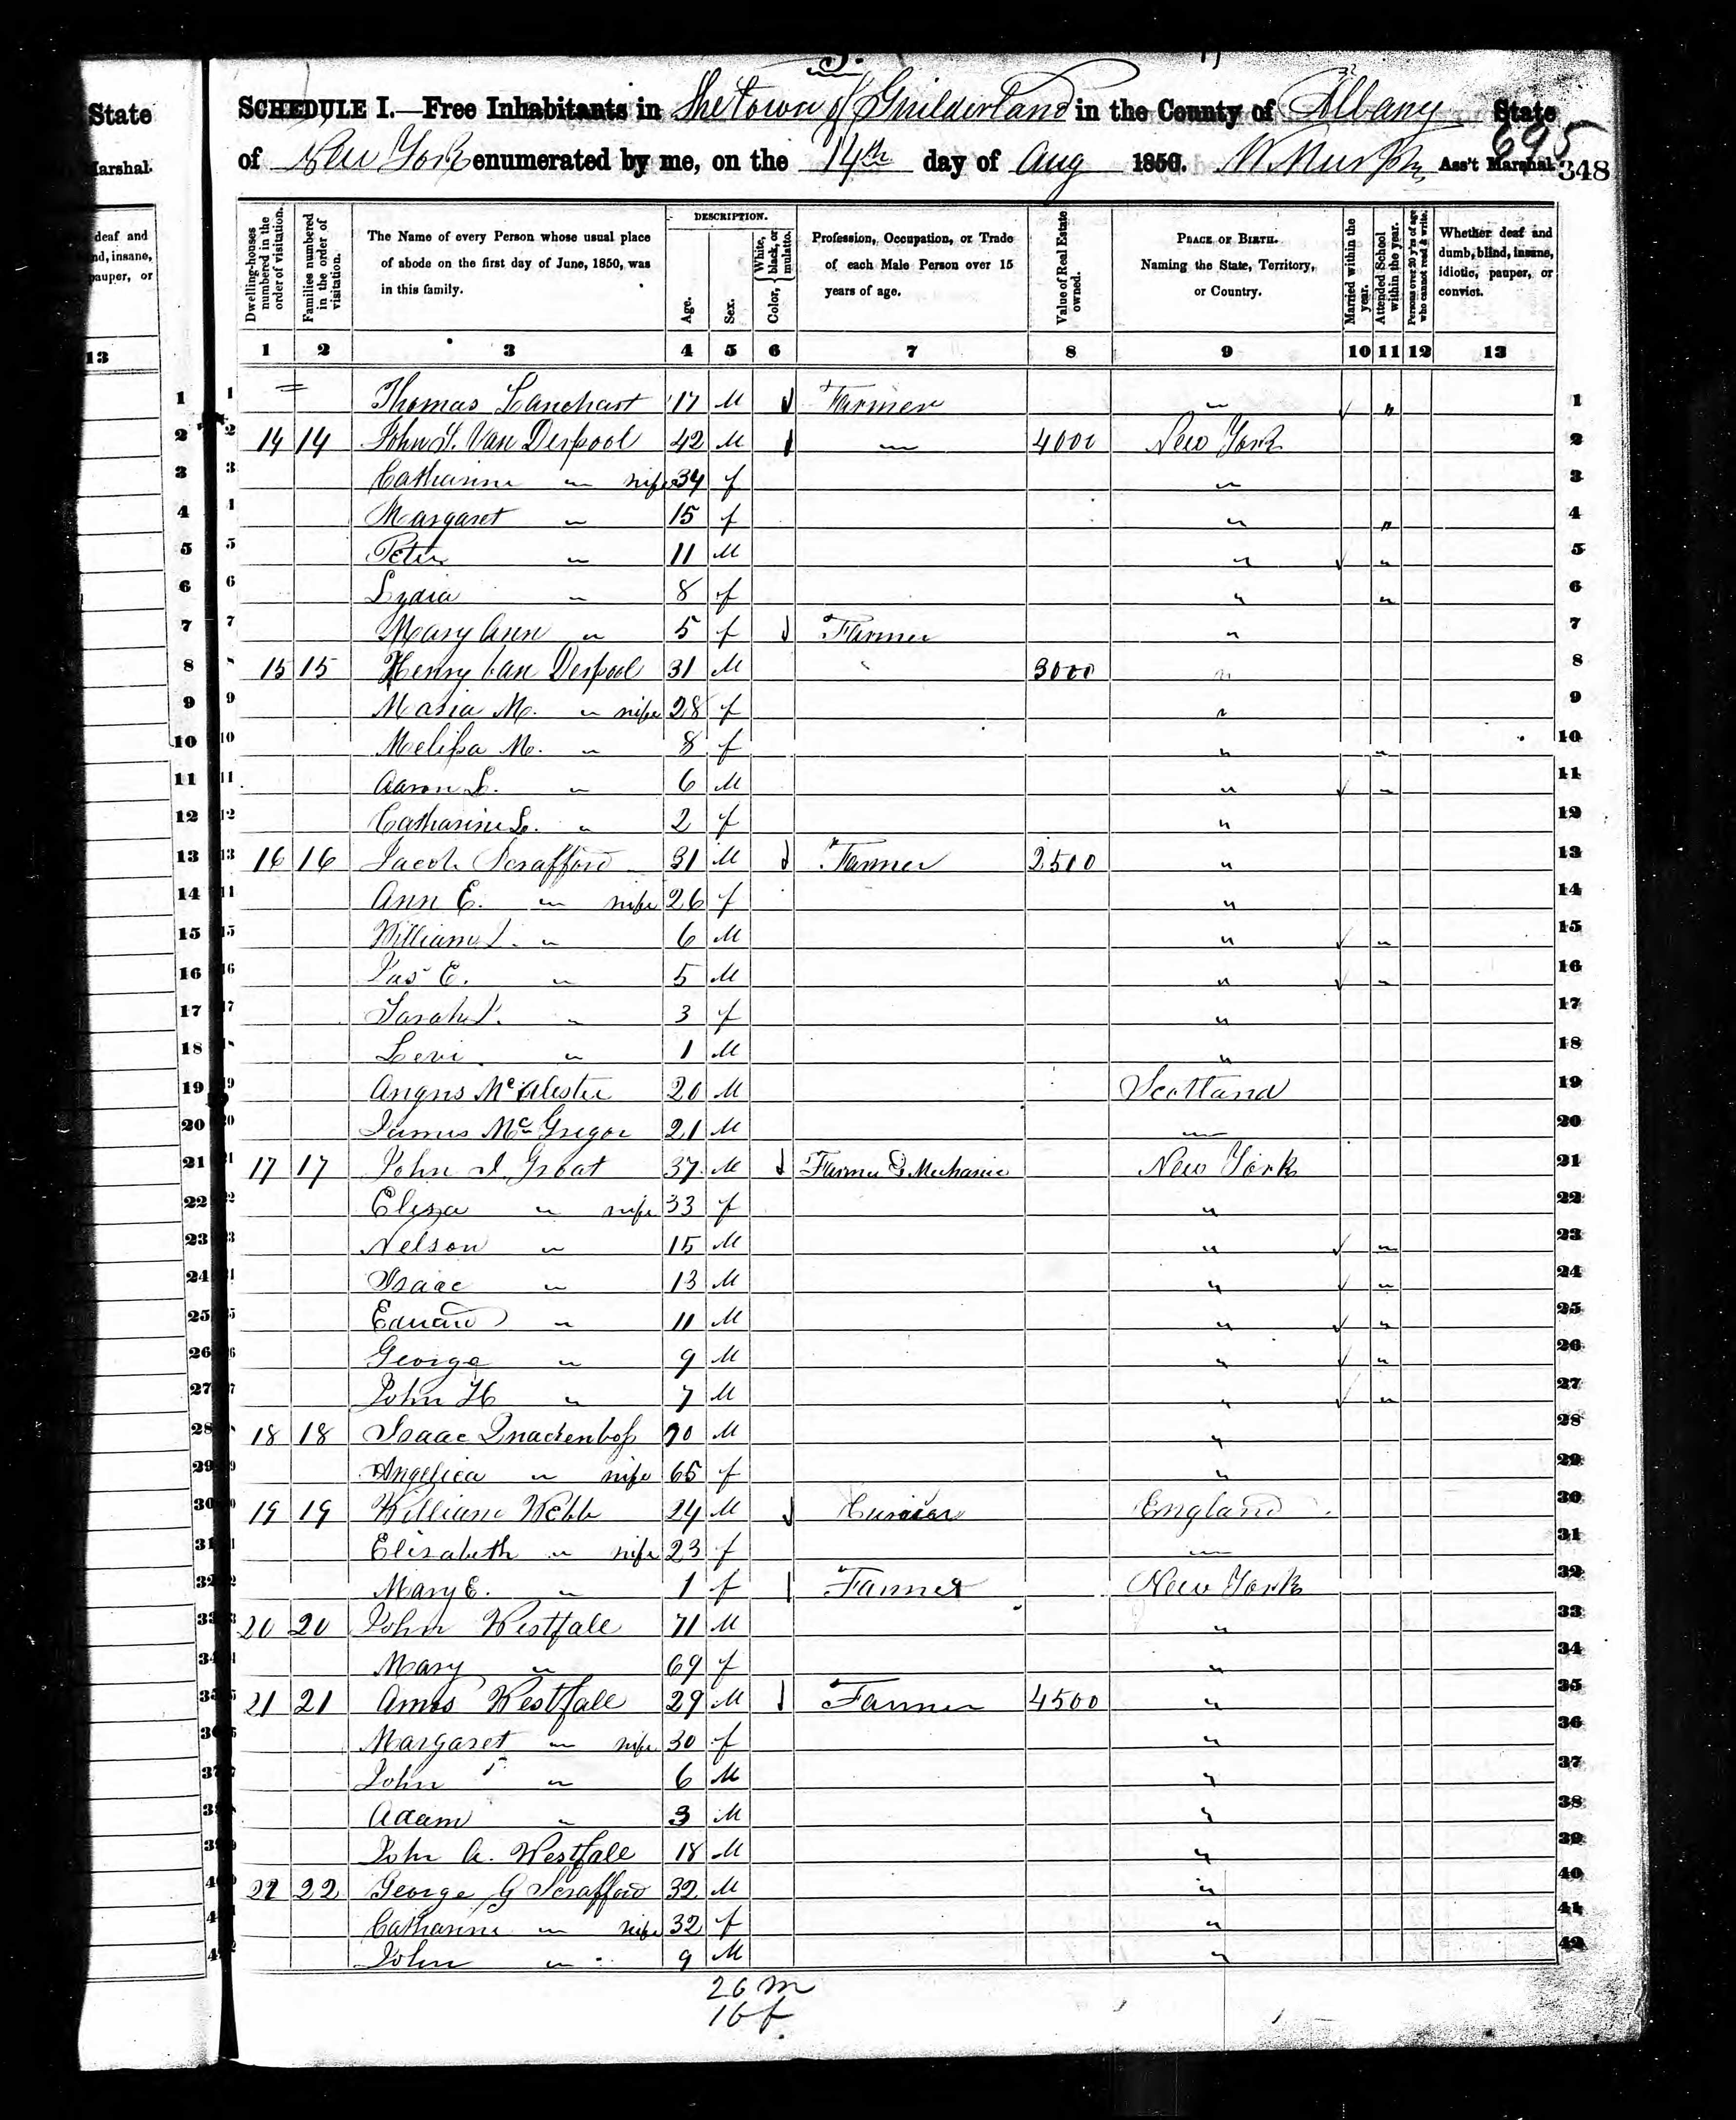 State
Marshal.
deaf and
nd, insane,
pauper, or
13
SCHEDULE I.—Free Inhabitants in The Town of Guilderland in the County of Albany State
of New York enumerated by me, on the 14th day of Aug 1850. Ass't Marshal.
695
348
Dwelling-houses numbered in the order of visitation.
Families numbered in the order of visitation.
The Name of every Person whose usual place of abode on the first day of June, 1850, was in this family.
DESCRIPTION.
Age.
Sex.
Color, White, black, or mulatto.
Profession, Occupation, or Trade of each Male Person over 15 years of age.
Value of Real Estate owned.
PLACE OF BIRTH. Naming the State, Territory, or Country.
Married within the year.
Attended School within the year.
Persons over 20 y'rs of age who cannot read & write.
Whether deaf and dumb, blind, insane, idiotic, pauper, or convict.
1 2 3 4 5 6 7 8 9 10 11 12 13
1 Thomas Lanehart 17 M Farmer " " 1
2 14 14 John J. Van Derpool 42 M " 4000 New York 2
3 Catharine " wife 34 f " 3
4 Margaret " 15 f " " 4
5 Peter " 11 M " " 5
6 Lydia " 8 f " " 6
7 Mary Ann " 5 f Farmer " 7
8 15 15 Henry Van Derpool 31 M 3000 " 8
9 Maria M. " wife 28 f " 9
10 Melissa M. " 8 f " " 10
11 Aaron L. " 6 M " " 11
12 Catharine L. " 2 f " 12
13 16 16 Jacob Scrafford 31 M Farmer 2500 " 13
14 Ann E. " wife 26 f " 14
15 William J. " 6 M " " 15
16 Jas E. " 5 M " " 16
17 Sarah J. " 3 f " 17
18 Levi " 1 M " 18
19 Angus McAlester 20 M Scotland 19
20 James McGregor 21 M " 20
21 17 17 John I. Groat 37 M Farmer & Mechanic New York 21
22 Eliza " wife 33 f " 22
23 Nelson " 15 M " " 23
24 Isaac " 13 M " " 24
25 Edward " 11 M " " 25
26 George " 9 M " " 26
27 John H " 7 M " " 27
28 18 18 Isaac Quackenboss 70 M " 28
29 Angelica " wife 65 f " 29
30 19 19 William Webb 24 M England 30
31 Elizabeth " wife 23 f " 31
32 Mary E. " 1 f Farmer New York 32
33 20 20 John Westfale 71 M " 33
34 Mary " 69 f " 34
35 21 21 Amos Westfale 29 M Farmer 4500 " 35
36 Margaret " wife 30 f " 36
37 John " 6 M " 37
38 Adam " 3 M " 38
39 John A. Westfale 18 M " 39
40 22 22 George G Scrafford 32 M " 40
41 Catharine " wife 32 f " 41
42 John " 9 M " 42
26 m
16 f.